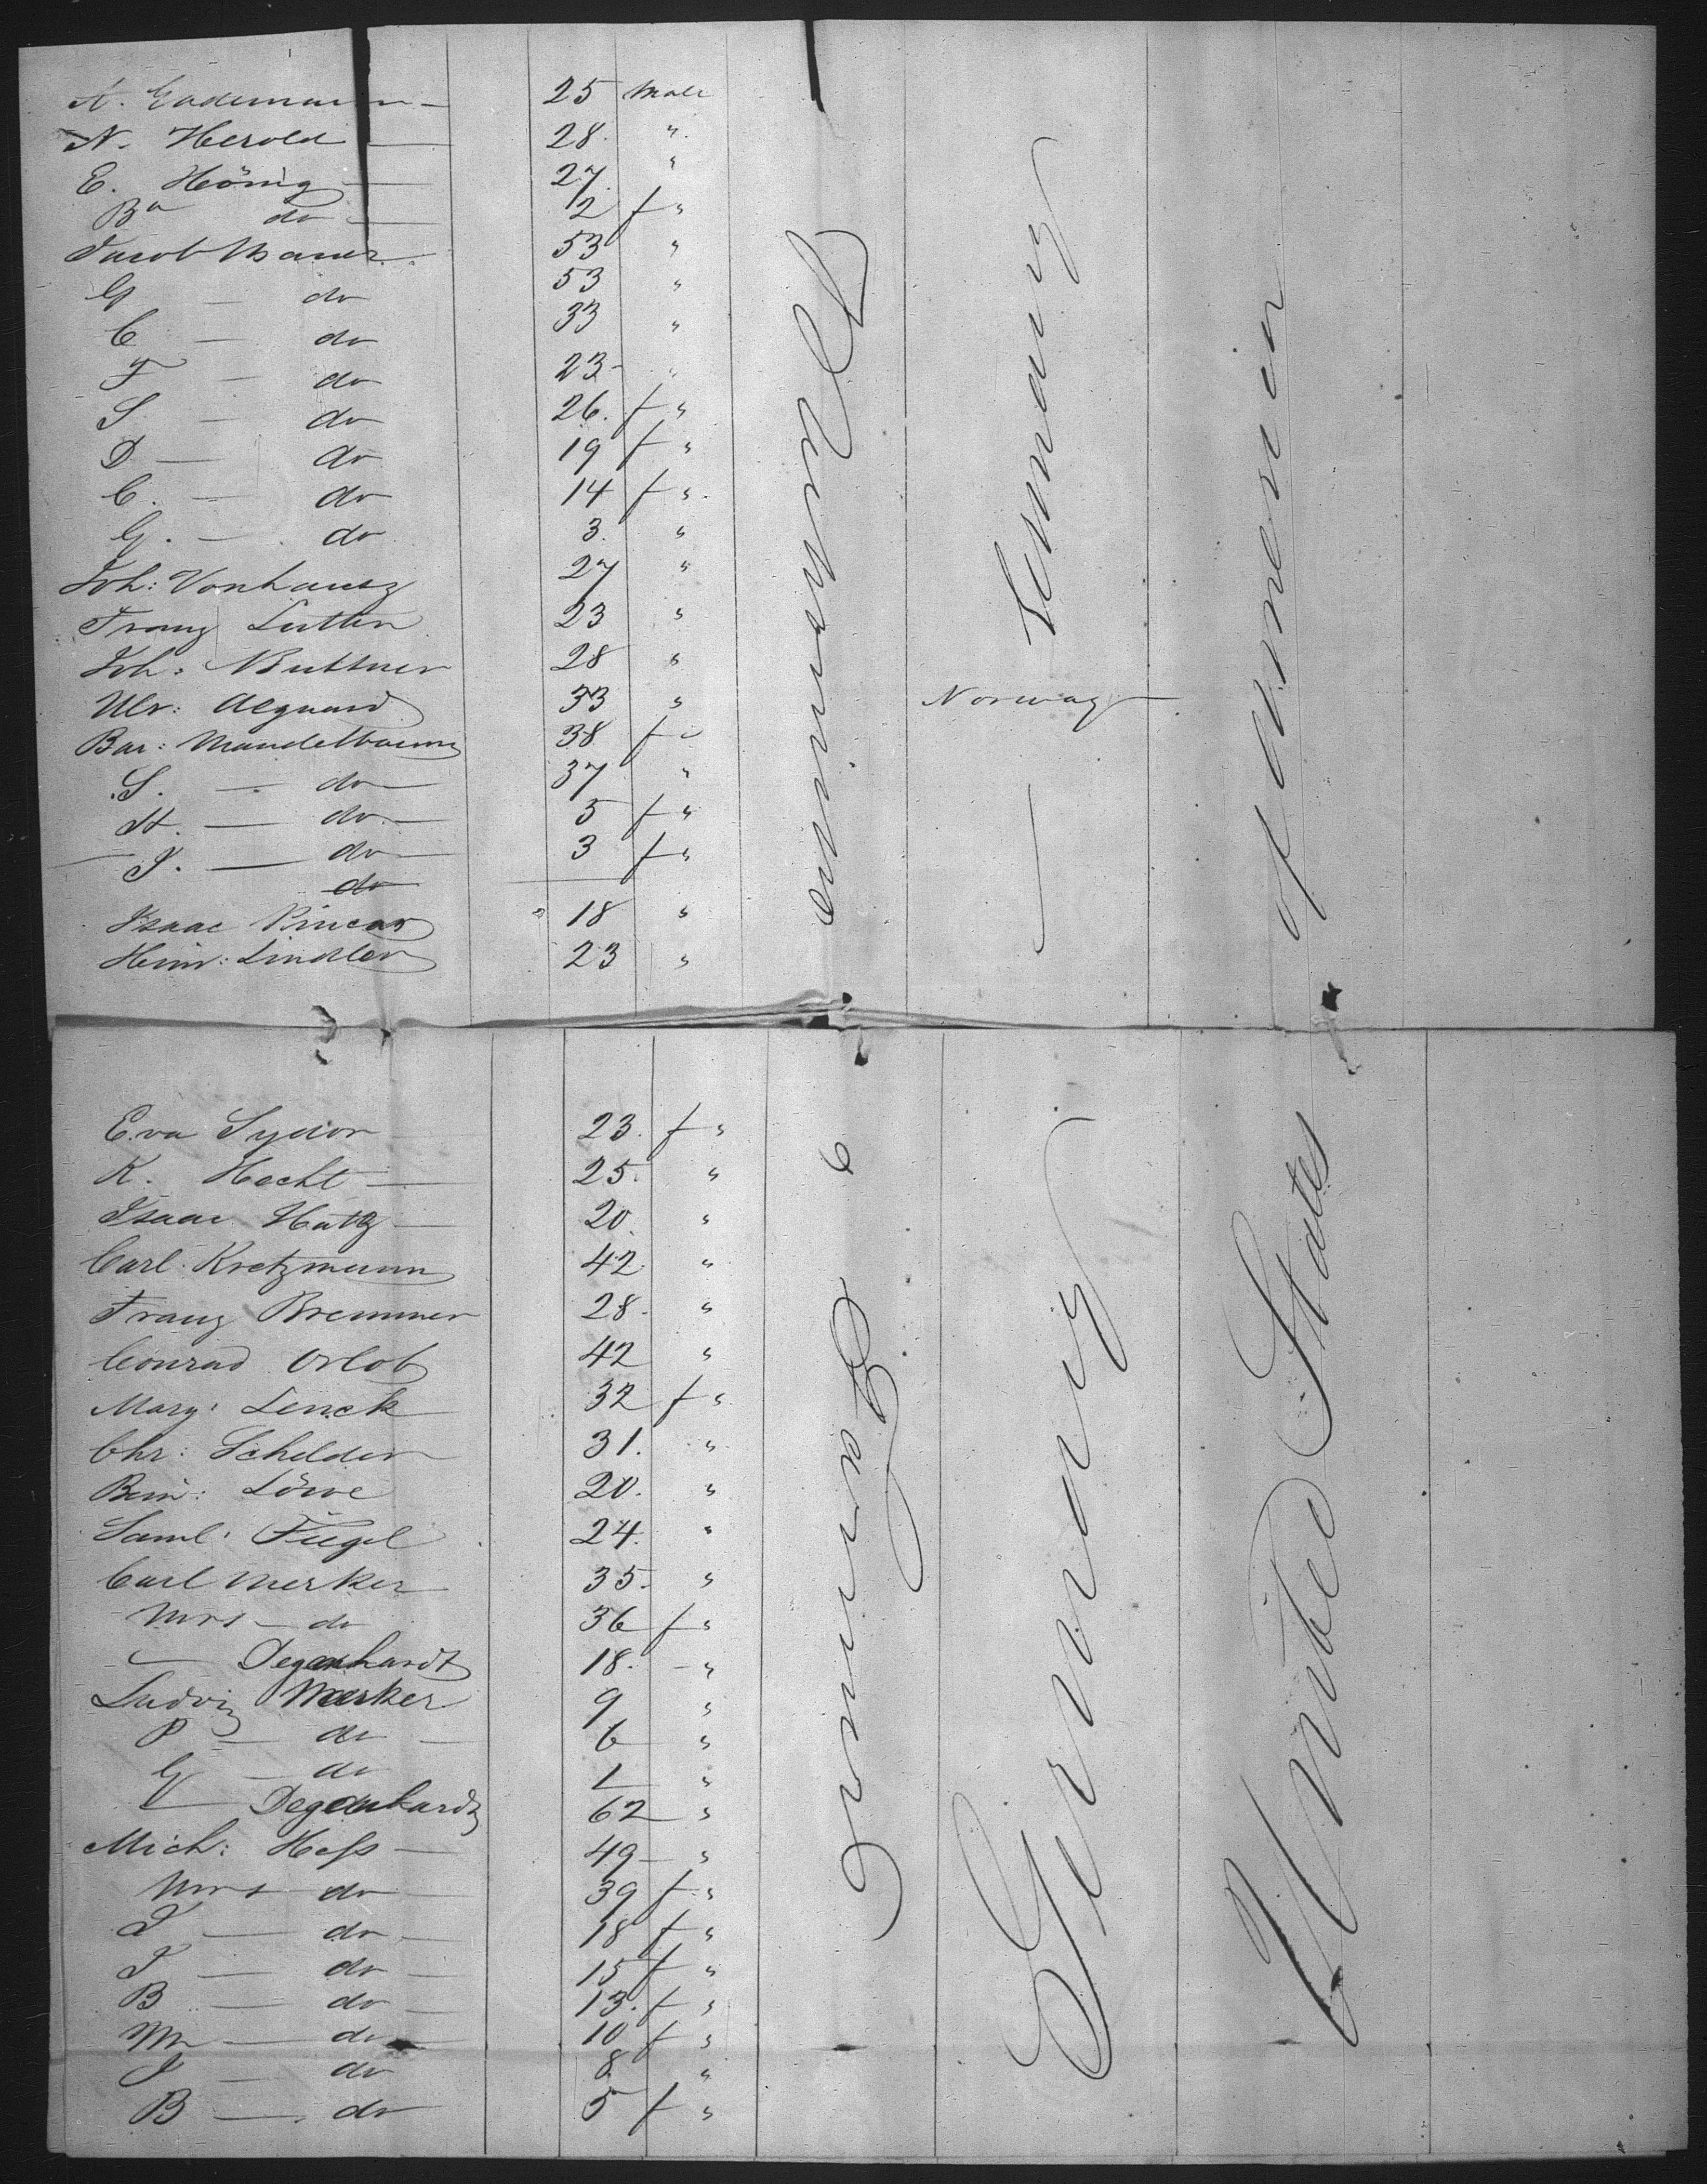 A. Gademann - 25 Male
N. Herold - 28. "
E. Hönig - 27. "
Ba do - 2 f "
Jacob Bauer 53 "
G - do 53 "
C - do 33 "
F - do 23 - "
S - do 26. f "
D - do 19 f "
C. - do 14 f "
G. - do 3. "
Joh: Vonhausz 27 "
Franz Lutten 23 "
Joh: Buttner 28 "
Ulr: Algaard 33 " Norway
Bar: Mandelbaum 38 f "
S. - do - 37 "
H. - do - 5 f "
J. - do - 3 f "
do
Isaac Pincas 18 "
Heinr: Lindler 23 "
Eva Sydor 23. f "
K. Hecht - 25. "
Isaac Hatz - 20. "
Carl Kretzmann 42 "
Franz Bremmer 28. "
Conrad Orlob 42 "
Mary: Lenck 32 f "
Chr: Schelder 31. "
Ben: Löwe 20. "
Saml: Fiegel 24. "
Carl Merker 35. "
Mrs - do 36 f "
- Degenhardt 18. - "
Ludwig Merker 9 "
P - do - 6 "
G - do 1 "
- Degenhardt 62 "
Mich: Hess - 49 - "
Mrs do 39 f "
- do - 18 f "
J - do - 15 f "
B - do - 13. f "
M - do 10 f "
J - do 8 "
B - do 5 f "
Germany
Germany
United States
of America